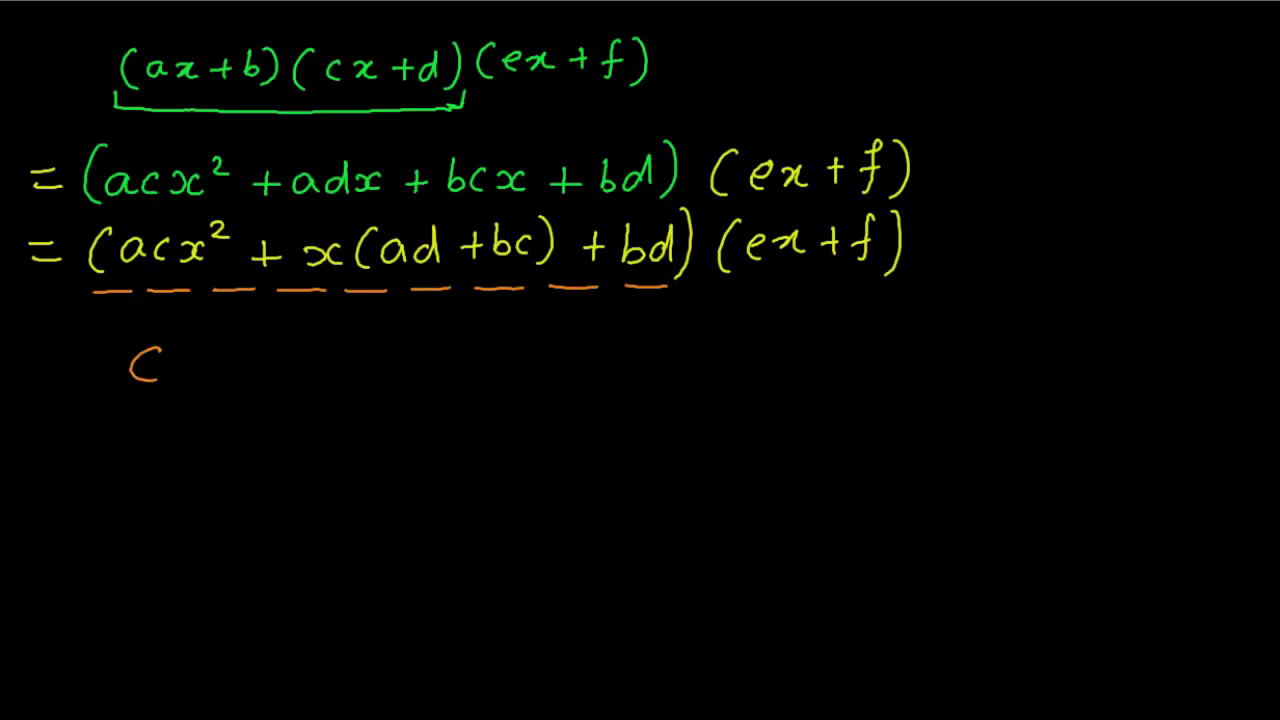 (ax+b)(cx+d)(ex+f)
= (acx² + adx + bcx + bd) (ex+f)
= (acx² + x(ad+bc) + bd) (ex+f)
C